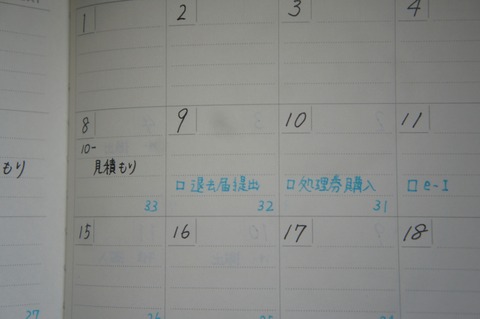 1 2 3 4
8 9 10 11
もり 10- 見積もり
□退去届提出 □処理券購入 □e-I
33 32 31
15 16 17 18
27 26 25